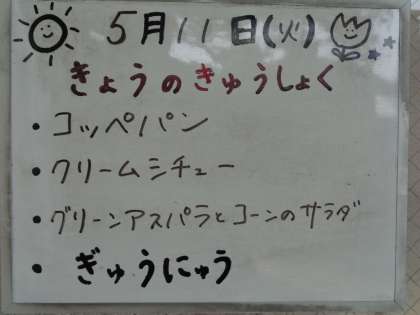 5月11日(火)
きょうのきゅうしょく
・コッペパン
・クリームシチュー
・グリーンアスパラとコーンのサラダ
・ぎゅうにゅう